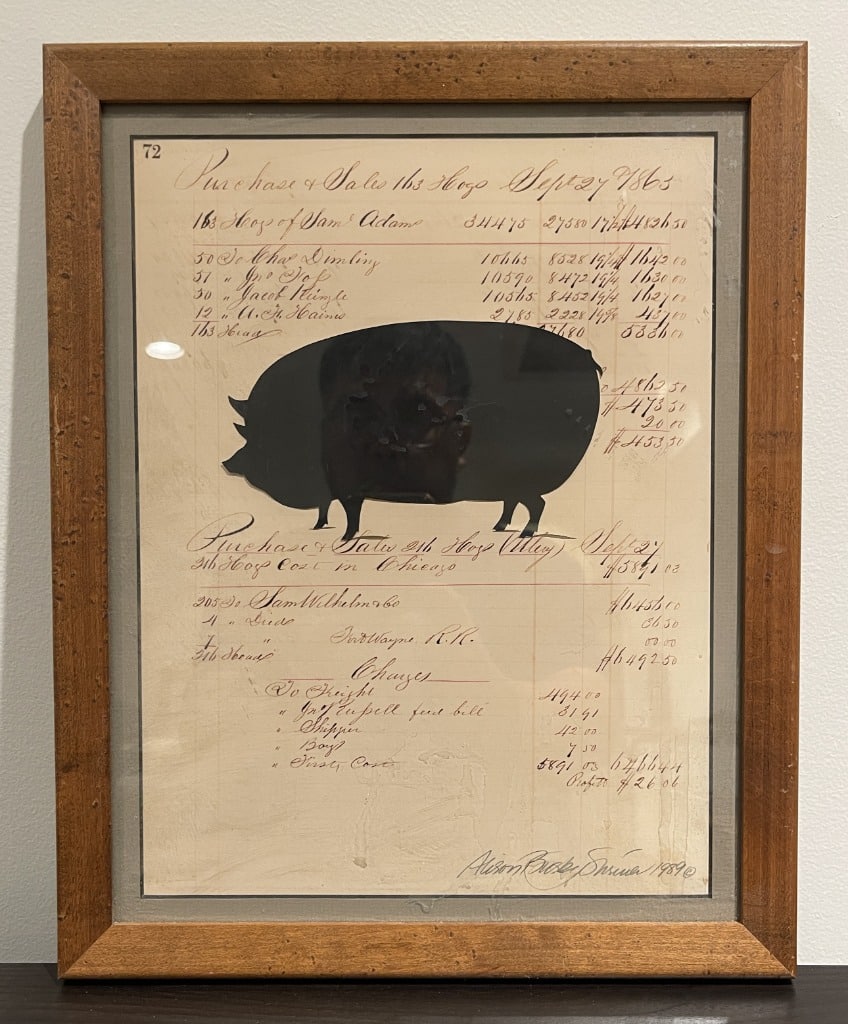 72
Purchase & Sales 163 Hogs Sept 27th 1865
163 Hogs of Saml Adams 34475 27580 17½ $4826 50
50 To Chas Dimling 10665 8528 19¼ $1642 00
51 " Jno 10590 8472 19¼ 1630 00
50 " Jacob 10565 8452 19¼ 1627 00
12 " A. F. Haines 2785 2228 19⅜ 431 00
163 Head 27680 5330 00
4862 50
$473 50
20 00
$453 50
Purchase & Sales 216 Hogs Sept 27
216 Hogs Cost in Chicago $5891 03
205 To Sam Wilhelm & Co $6456 00
4 " Died 36 50
7 " Fort Wayne R.R. 00 00
216 Head $6492 50
Charges
To Freight 494 00
" Jno feed bill 31 91
" Shipper 42 00
" Boys 7 50
" First Cost 5891 03 6466 44
Profit $26 06
Alison 1989 ©